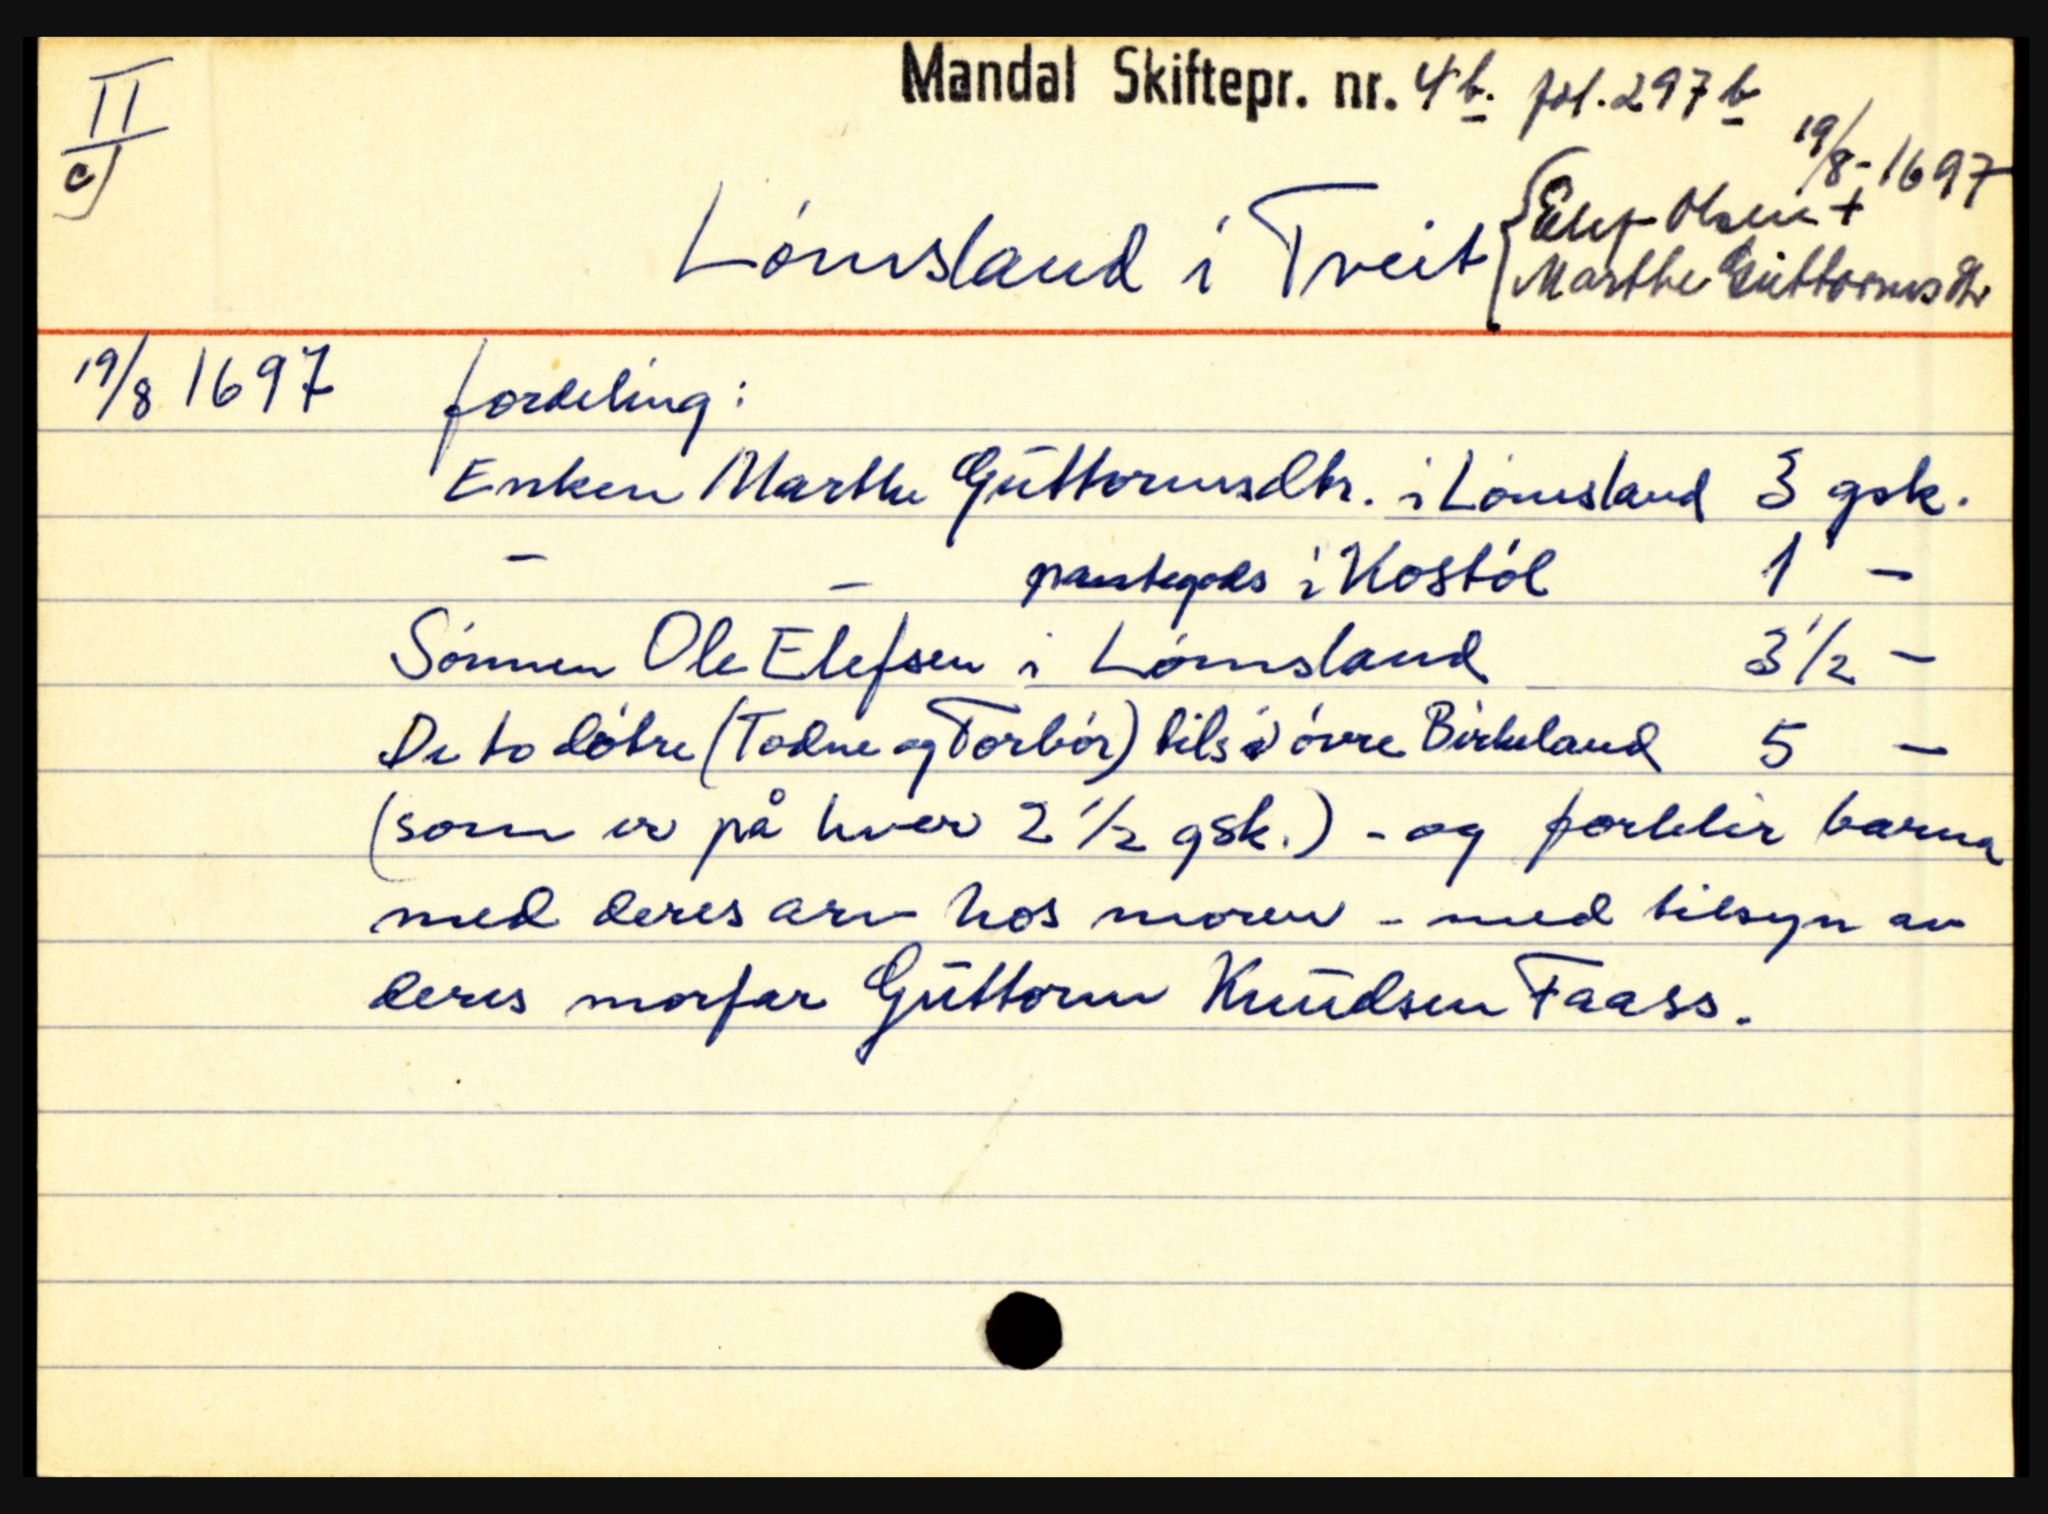 Mandal Skiftepr. nr. 4b. fol. 297b
II
c)
19/8-1697
Lómsland i Tveit
{Elef Olsen +
Marthe Güttormsdtr
19/8 1697 fordeling:
Enken Marthe Güttormsdtr. i Lómsland 3 gsk.
- - pantegods i Kostól 1 -
Sónnen Ole Elefsen i Lómsland 3 1/2 -
De to dótre (Todne og Torbór) tils. i óvre Birkeland 5 -
(som er på hver 2 1/2 gsk.) - og forblir barna
med deres arv hos moren - med tilsyn av
deres morfar Güttorm Knüdsen Faass.